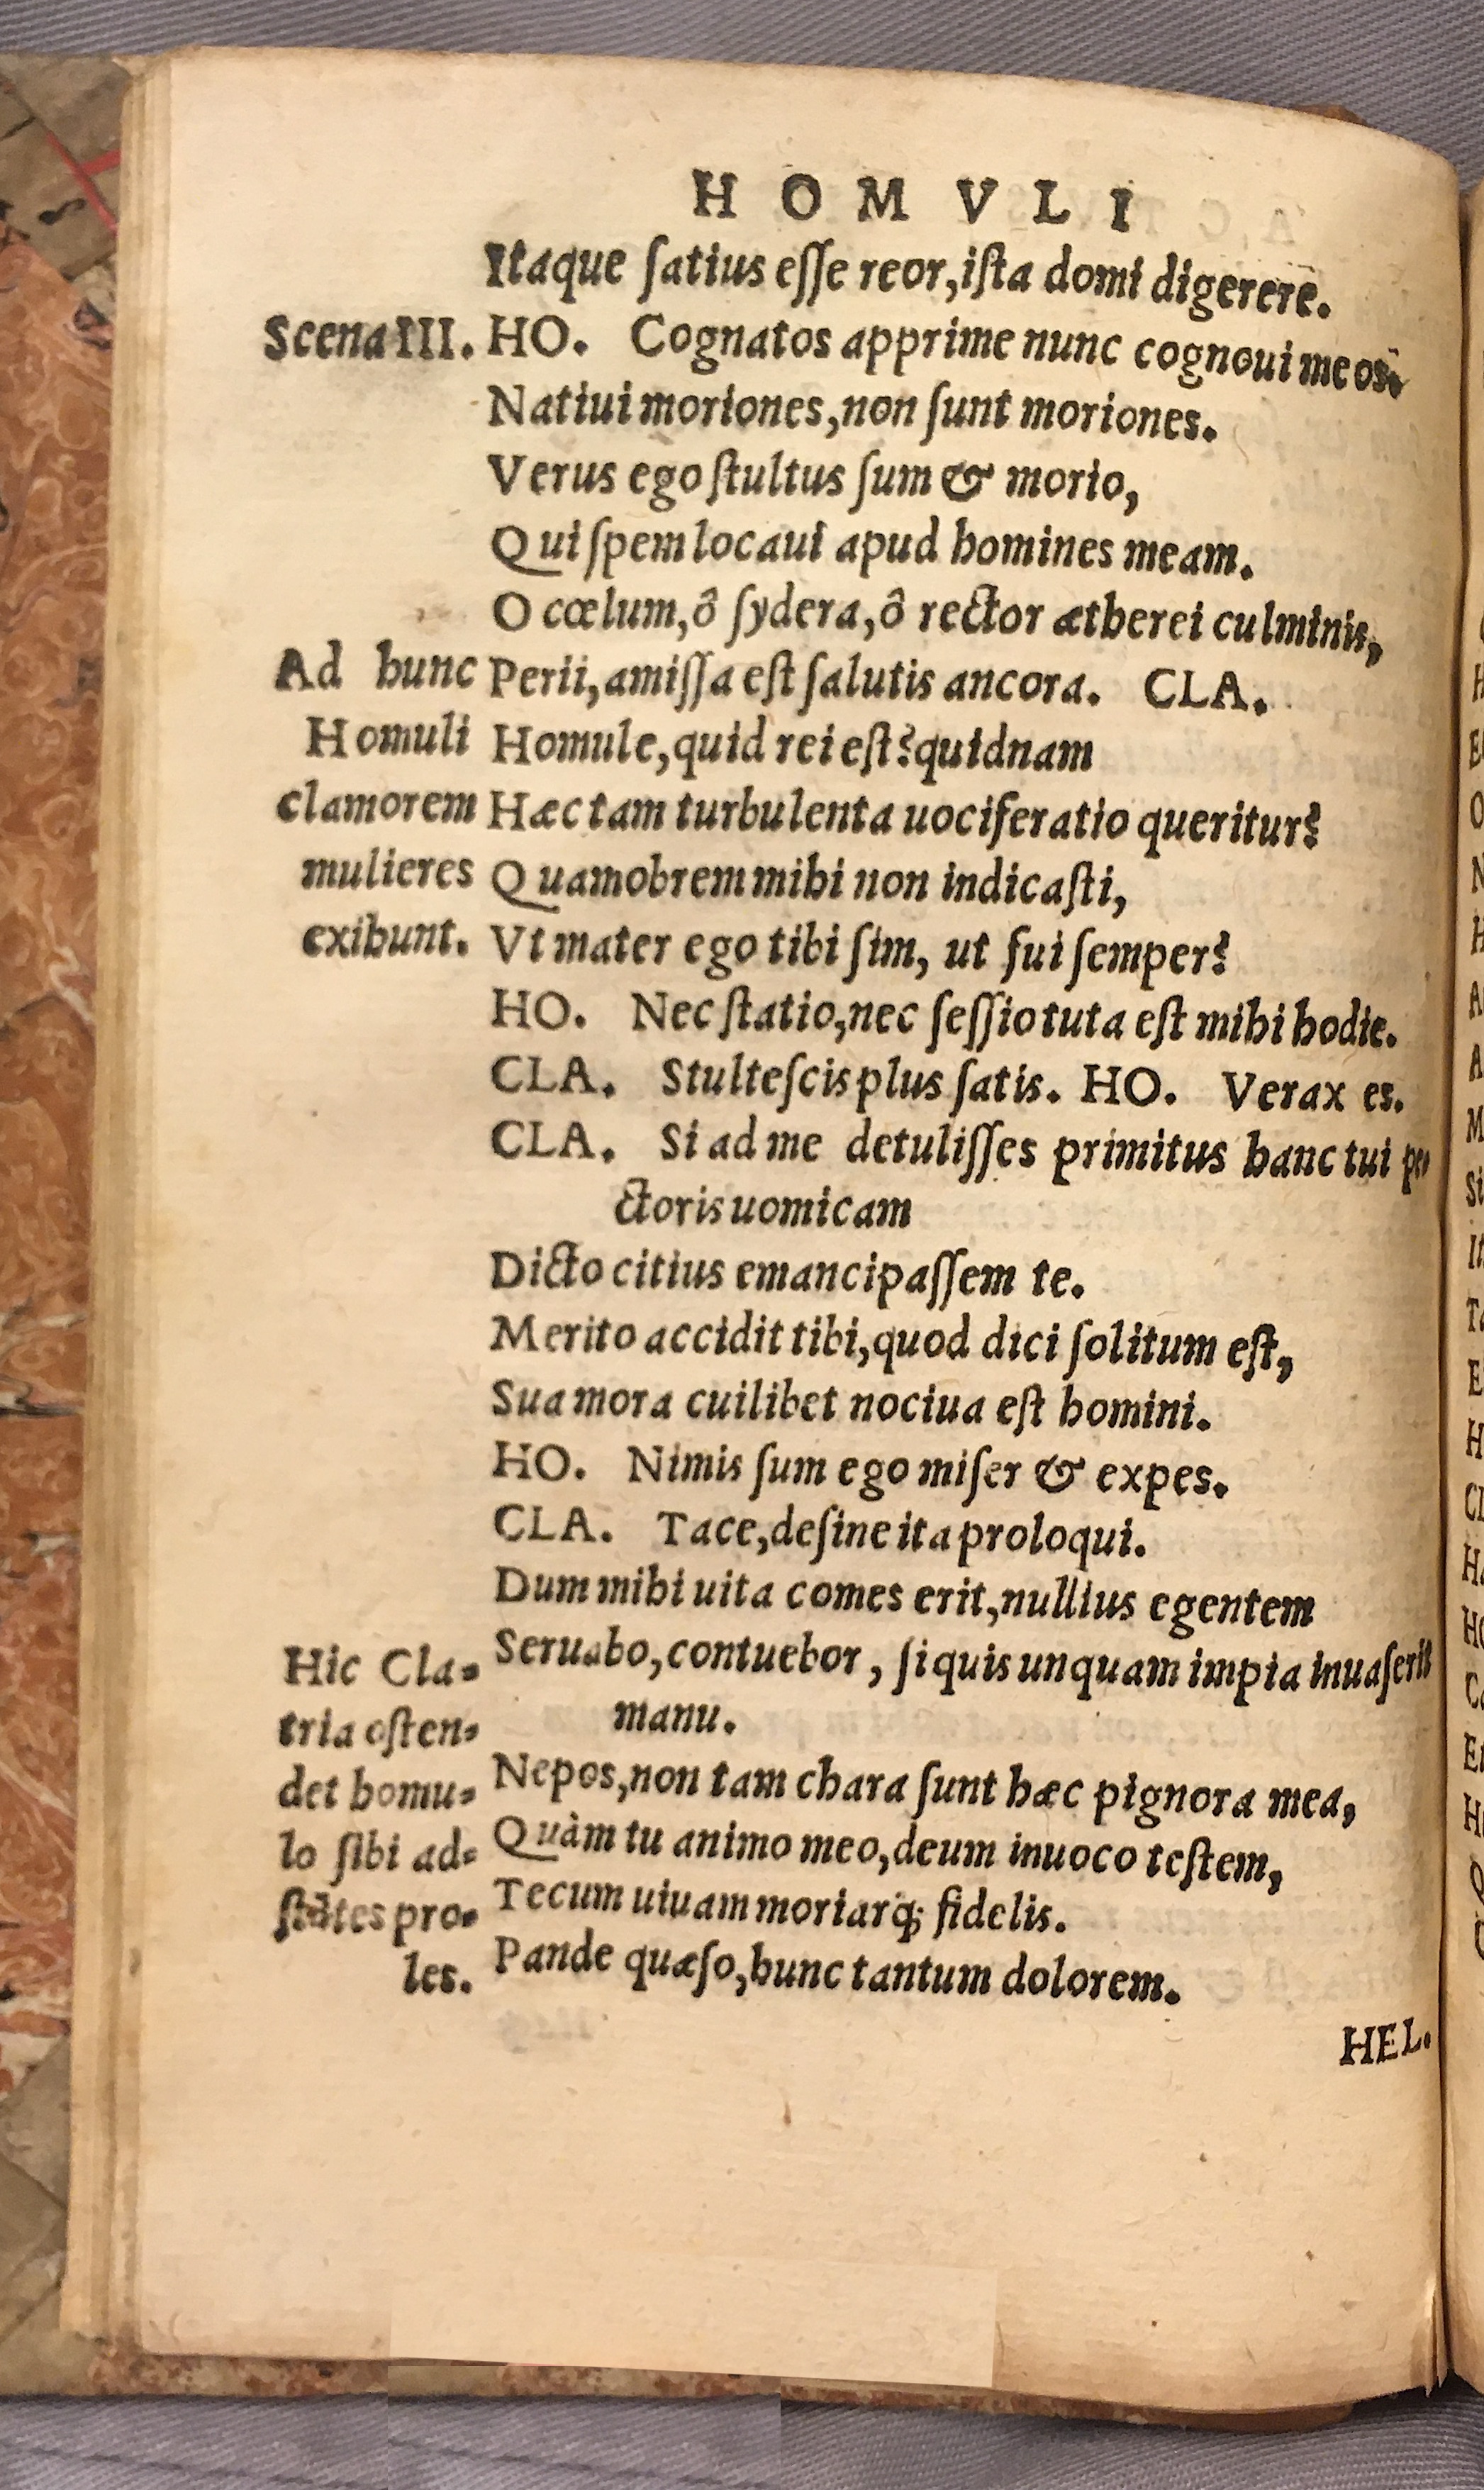 HOMVLI
Itaque ſatius eſſe reor, iſta domi digerere.
Scena III. HO. Cognatos apprime nunc cognoui meos.
Natiui moriones, non ſunt moriones.
Verus ego ſtultus ſum & morio,
Qui ſpem locaui apud homines meam.
O cœlum, ô ſydera, ô rector ætherei culminis,
Ad hunc Perii, amiſſa eſt ſalutis ancora. CLA.
Homuli Homule, quid rei eſt? quidnam
clamorem Hæc tam turbulenta uociferatio queritur?
mulieres Quamobrem mihi non indicaſti,
exibunt. Vt mater ego tibi ſim, ut fui ſemper?
HO. Nec ſtatio, nec ſeſſio tuta eſt mihi hodie.
CLA. Stulteſcis plus ſatis. HO. Verax es.
CLA. Si ad me detuliſſes primitus hanc tui pe
ctoris uomicam
Dicto citius emancipaſſem te.
Merito accidit tibi, quod dici ſolitum eſt,
Sua mora cuilibet nociua eſt homini.
HO. Nimis ſum ego miſer & expes.
CLA. Tace, deſine ita proloqui.
Dum mihi uita comes erit, nullius egentem
Hic Cla= Seruabo, contuebor, ſi quis unquam impia inuaſerit
tria oſten= manu.
det homu= Nepos, non tam chara ſunt hæc pignora mea,
lo ſibi ad= Quàm tu animo meo, deum inuoco teſtem,
ſtātes pro= Tecum uiuam moriarq; fidelis.
les. Pande quæſo, hunc tantum dolorem.
HEL.